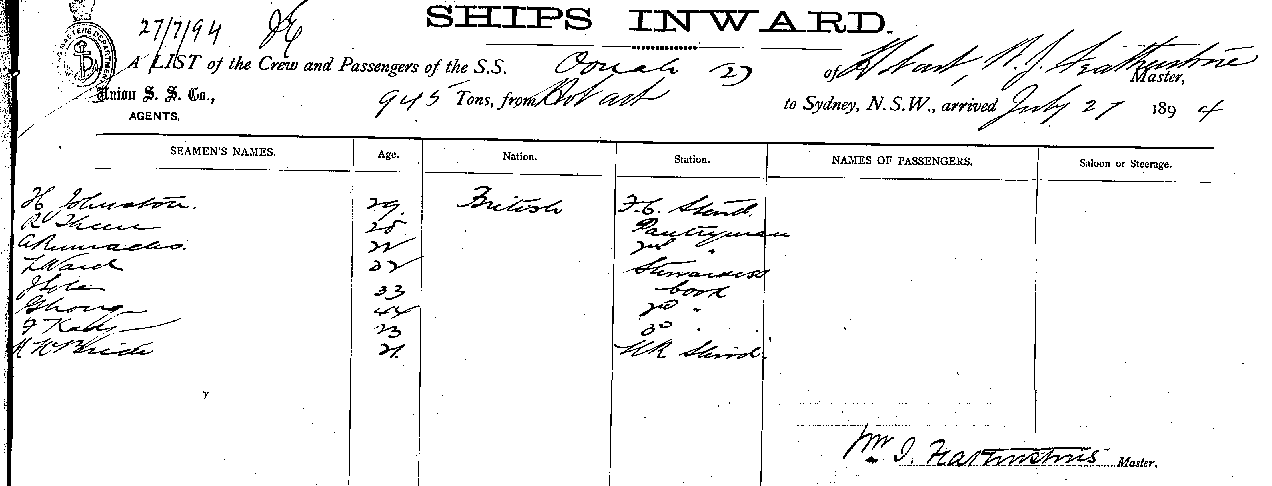 27/7/94
SHIPS INWARD.
A LIST of the Crew and Passengers of the S.S. Oonah of Hobart, W. J. Featherstone Master,
Union S. S. Co., 945 Tons, from Hobart to Sydney, N.S.W., arrived July 27 1894
AGENTS,
SEAMEN'S NAMES. Age. Nation. Station. NAMES OF PASSENGERS. Saloon or Steerage.
H Johnston. 29. British F.C. Stewd.
R 28 Pantryman
A 22 2nd "
L Ward 32 Stewardess
J Cole 33 Cook
G 44 2nd "
F Kelly 23 3rd "
McBride 21 Stewd.
Featherstone Master.